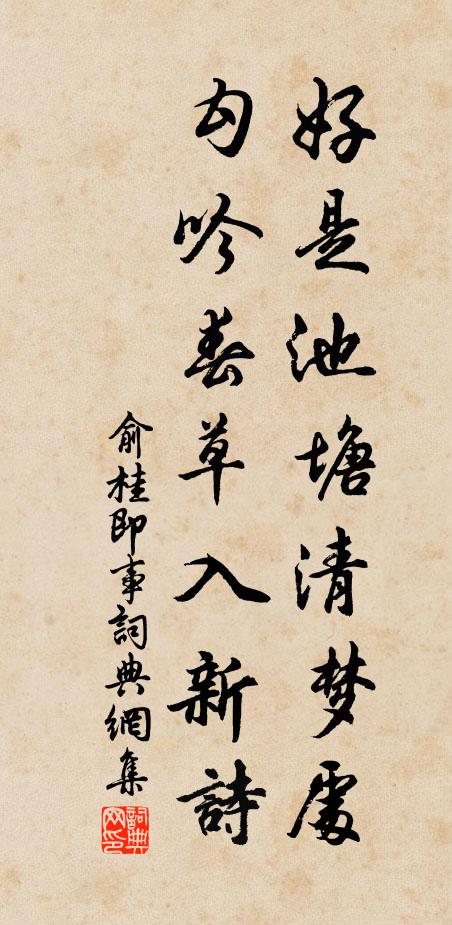 好是池塘清梦處
勾吟春草入新詩
俞桂即事詞典網集
詞典网印